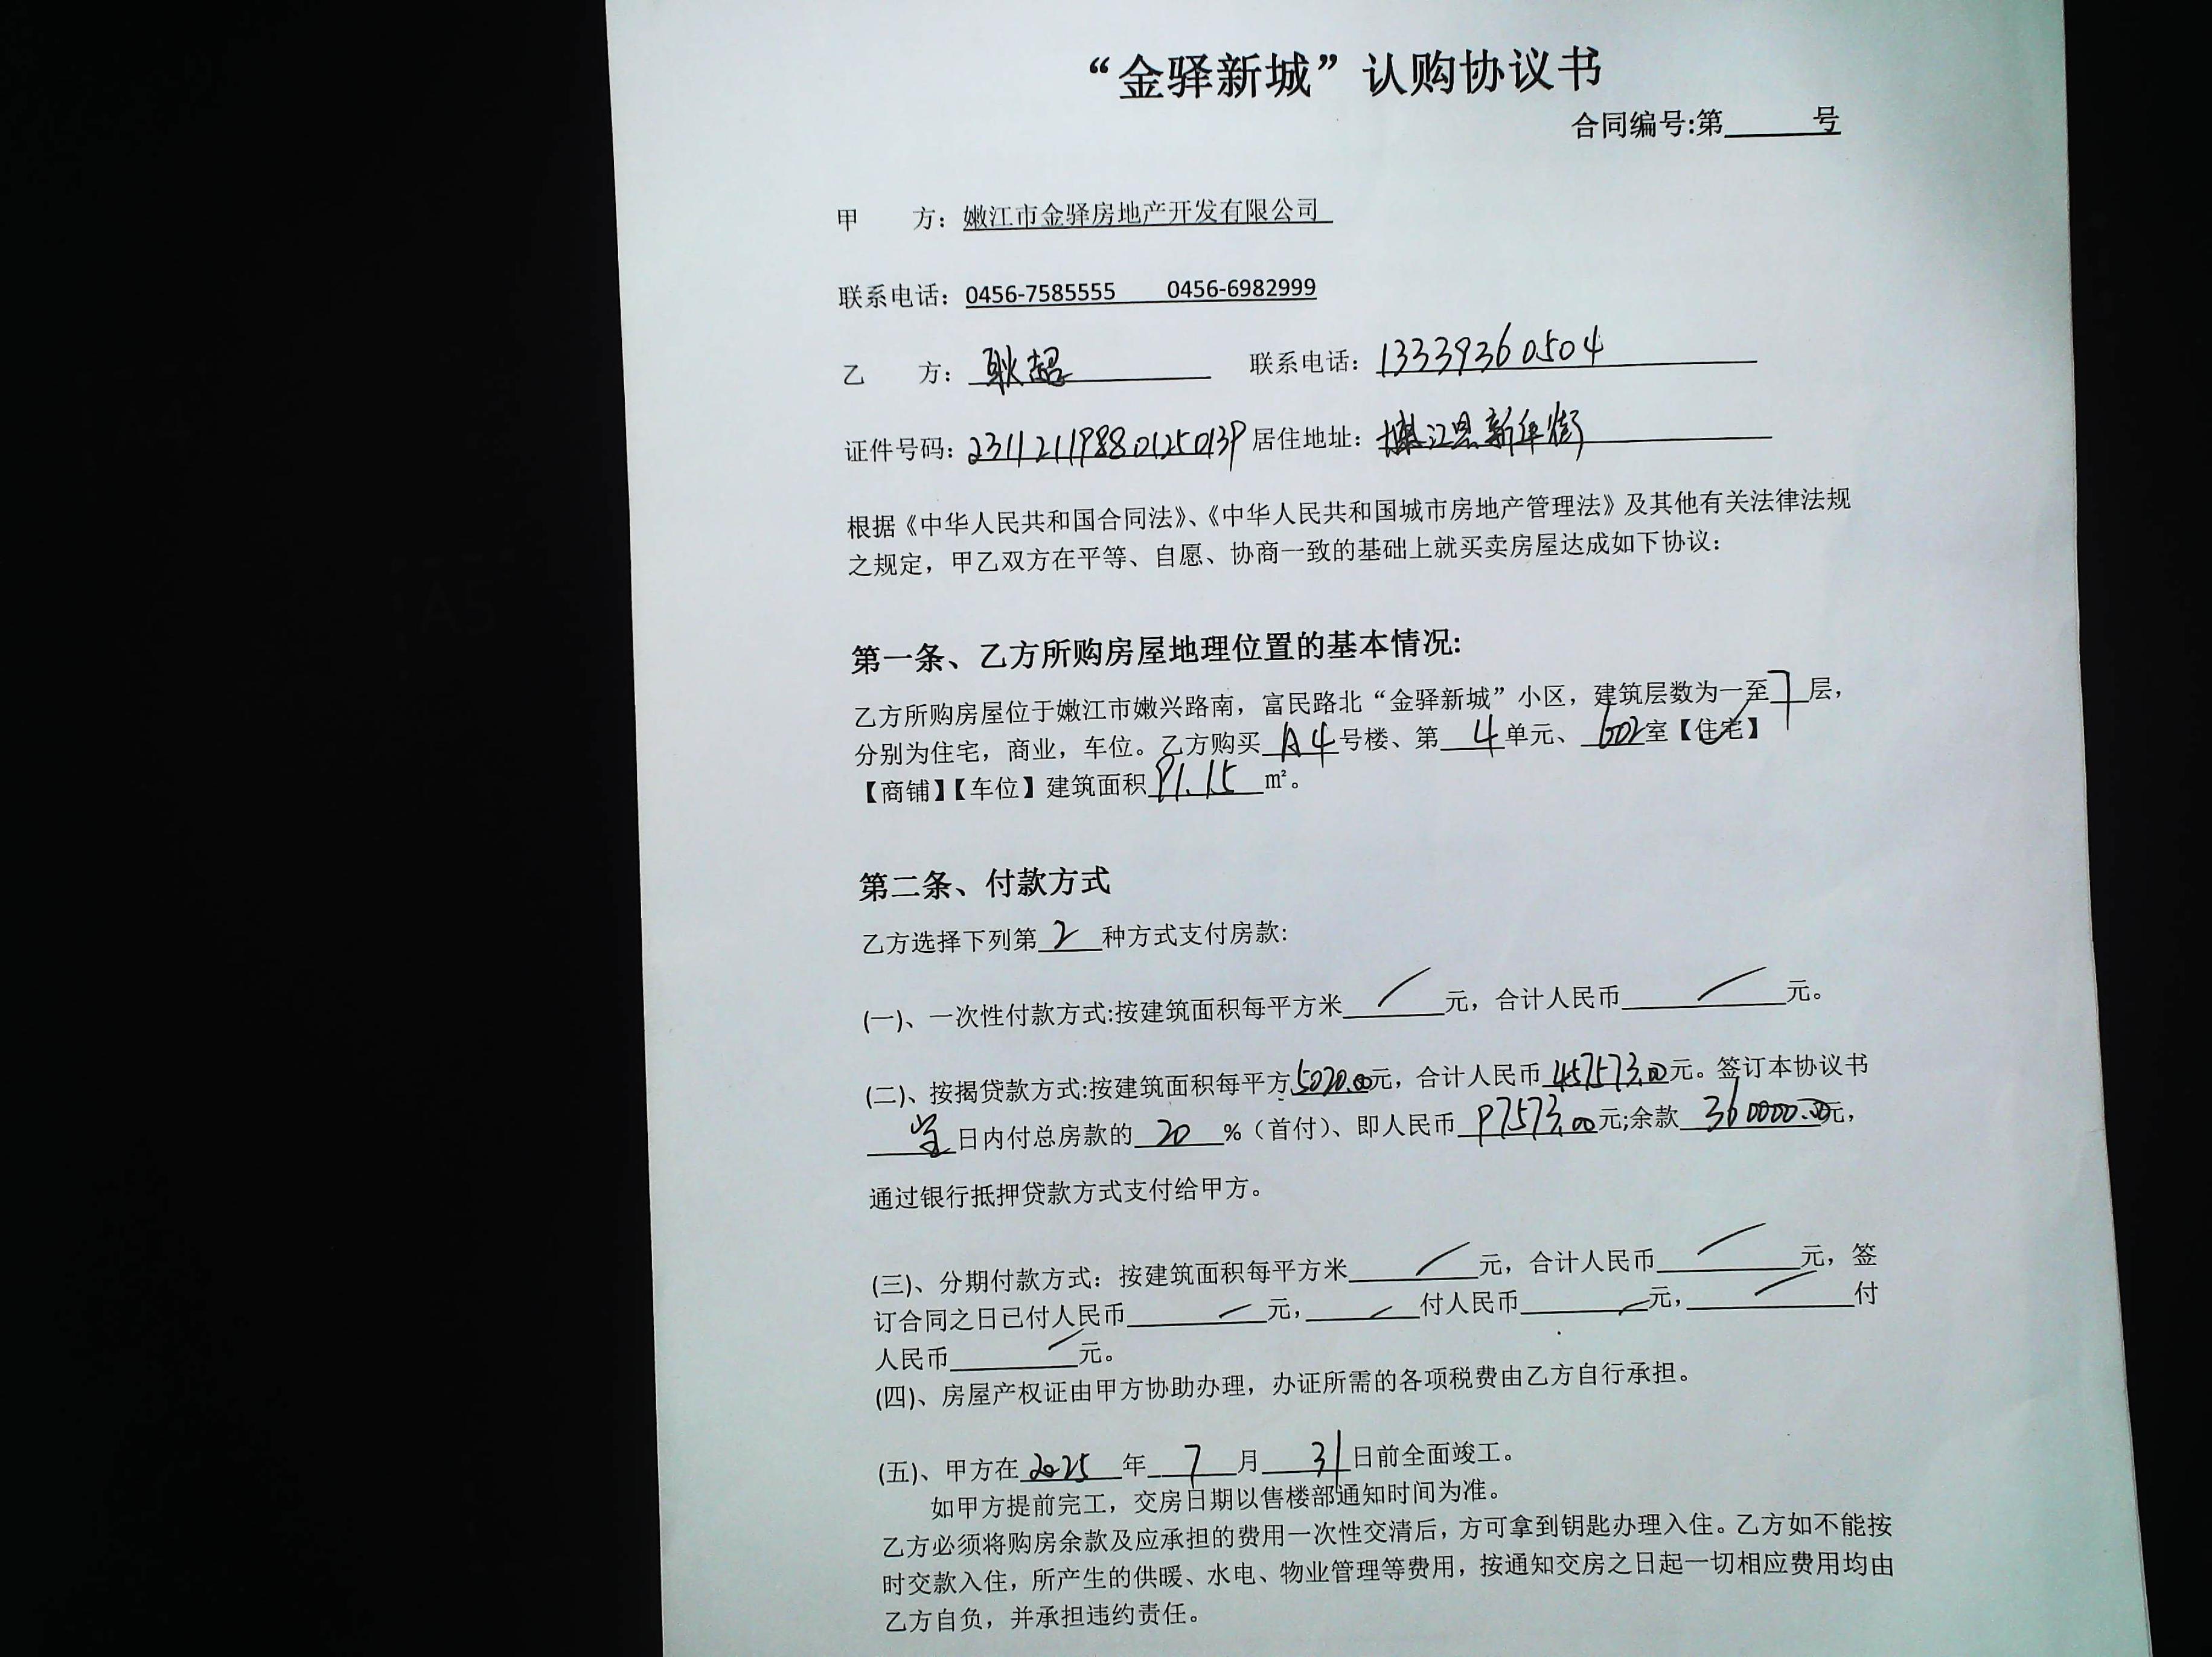 “金驿新城”认购协议书
合同编号:第______号
甲　　方：嫩江市金驿房地产开发有限公司
联系电话：0456-7585555　　0456-6982999
乙　　方：耿超　　联系电话：13339360504
证件号码：231121198801250139 居住地址：嫩江县新华街
根据《中华人民共和国合同法》、《中华人民共和国城市房地产管理法》及其他有关法律法规
之规定，甲乙双方在平等、自愿、协商一致的基础上就买卖房屋达成如下协议：
第一条、乙方所购房屋地理位置的基本情况:
乙方所购房屋位于嫩江市嫩兴路南，富民路北“金驿新城”小区，建筑层数为一至7层，
分别为住宅，商业，车位。乙方购买A4号楼、第4单元、602室【住宅】
【商铺】【车位】建筑面积91.15㎡。
第二条、付款方式
乙方选择下列第2种方式支付房款:
(一)、一次性付款方式:按建筑面积每平方米 / 元，合计人民币 / 元。
(二)、按揭贷款方式:按建筑面积每平方5020.00元，合计人民币457573.00元。签订本协议书
当日内付总房款的20%（首付）、即人民币97573.00元;余款360000.00元，
通过银行抵押贷款方式支付给甲方。
(三)、分期付款方式：按建筑面积每平方米 / 元，合计人民币 / 元，签
订合同之日已付人民币 / 元， / 付人民币 / 元， / 付
人民币 / 元。
(四)、房屋产权证由甲方协助办理，办证所需的各项税费由乙方自行承担。
(五)、甲方在2025年7月31日前全面竣工。
如甲方提前完工，交房日期以售楼部通知时间为准。
乙方必须将购房余款及应承担的费用一次性交清后，方可拿到钥匙办理入住。乙方如不能按
时交款入住，所产生的供暖、水电、物业管理等费用，按通知交房之日起一切相应费用均由
乙方自负，并承担违约责任。